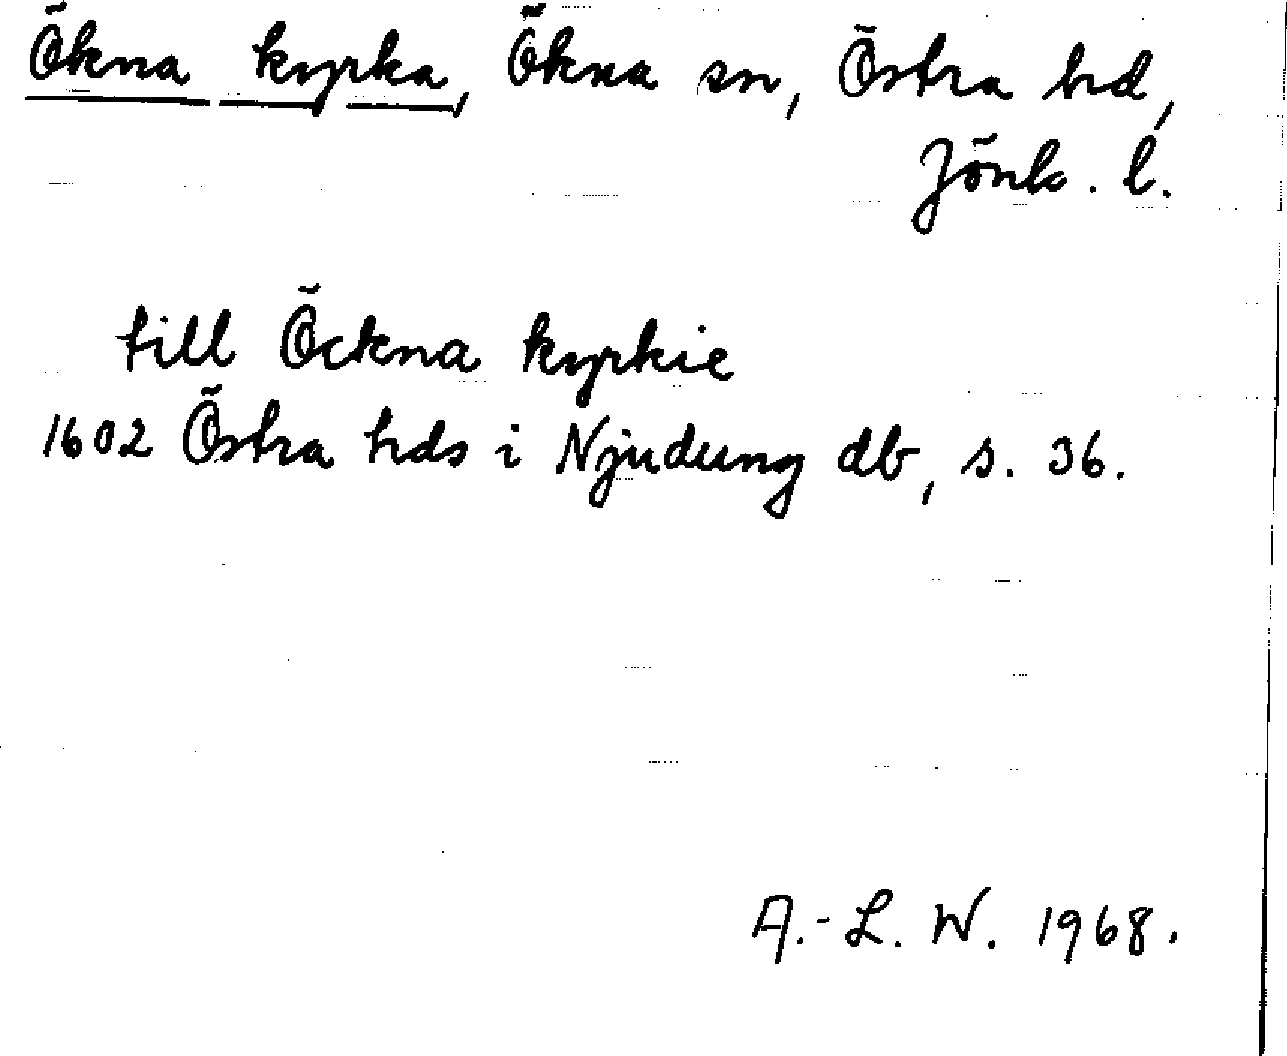 Ökna kyrka, Ökna sn, Östra hd,
Jönk. l.
till Öckna kyrkie
1602 Östra hds i Njudung db, s. 36.
A.-L. W. 1968.